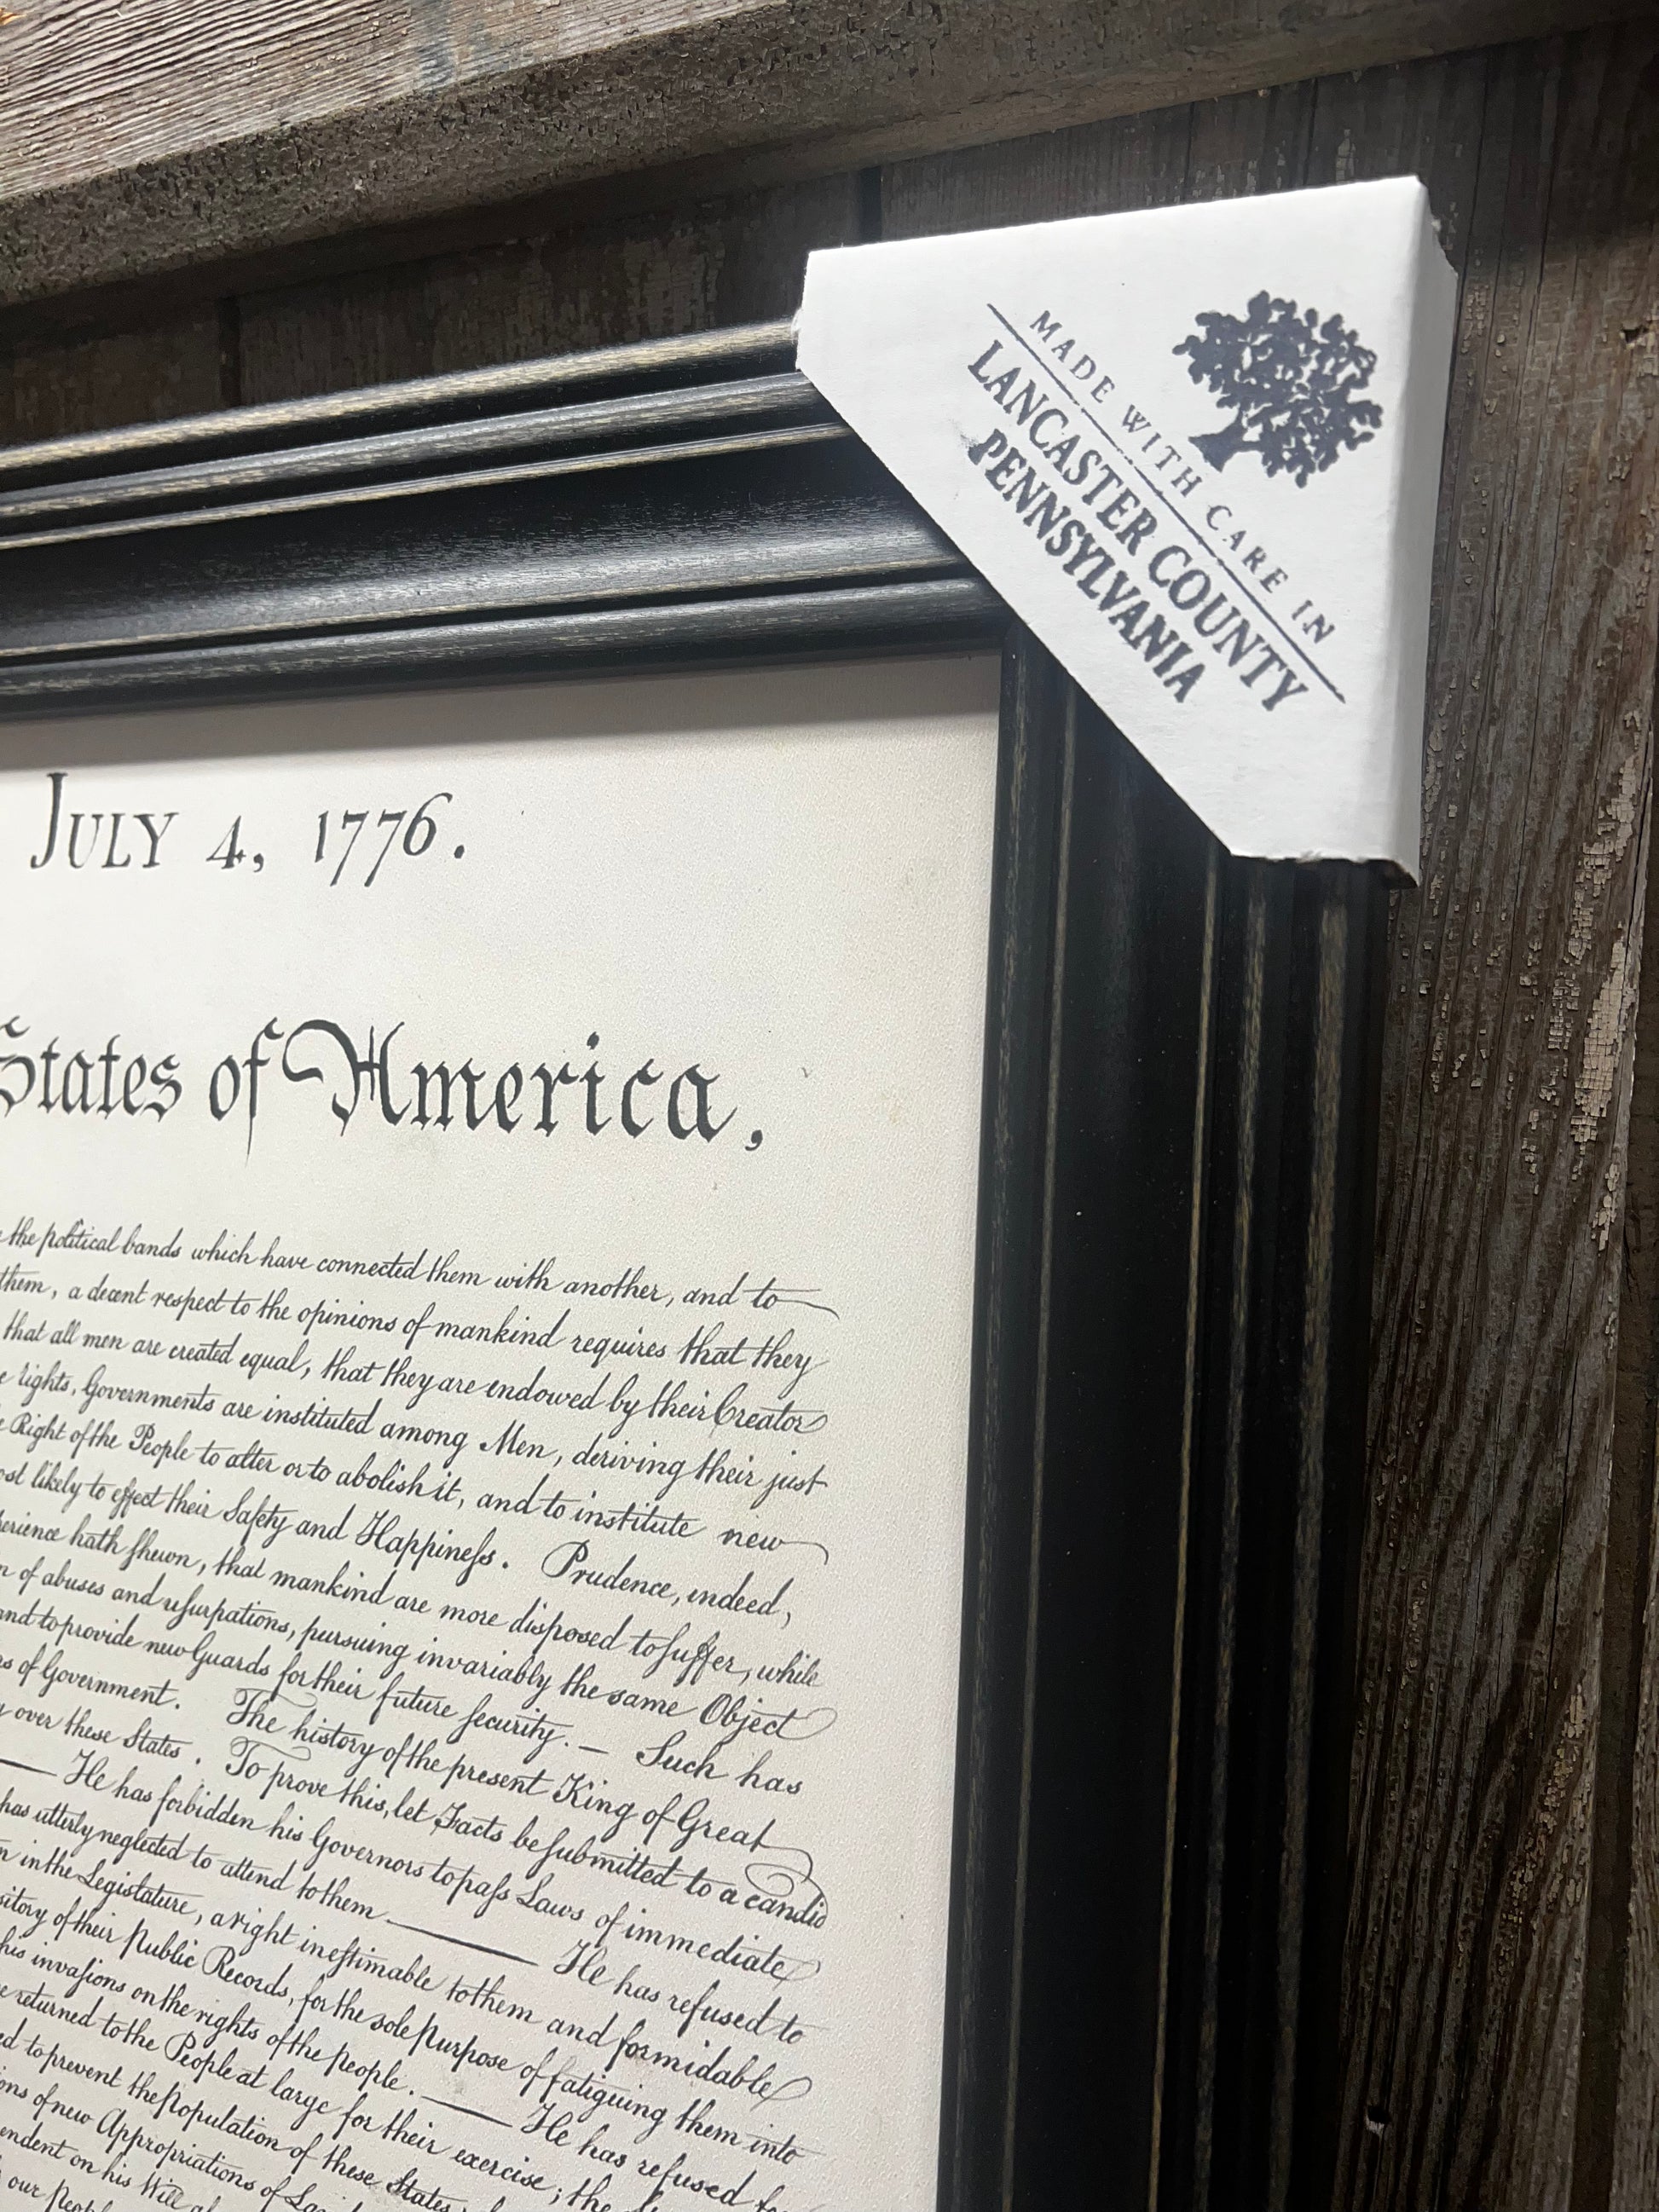 MADE WITH CARE IN
LANCASTER COUNTY
PENNSYLVANIA
JULY 4, 1776.
States of America,
the political bands which have connected them with another, and to
them, a decent respect to the opinions of mankind requires that they
that all men are created equal, that they are endowed by their Creator
rights, Governments are instituted among Men, deriving their just
Right of the People to alter or to abolish it, and to institute new
likely to effect their Safety and Happineſs. Prudence, indeed,
hath ſhewn, that mankind are more disposed to ſuffer, while
of abuses and uſurpations, pursuing invariably the same Object
and to provide new Guards for their future ſecurity. — Such has
of Government. The history of the present King of Great
over these States. To prove this, let Facts be ſubmitted to a candid
— He has forbidden his Governors to paſs Laws of immediate
has utterly neglected to attend to them — He has refused to
in the Legislature, a right ineſtimable to them and formidable
of their Public Records, for the sole Purpose of fatiguing them into
his invaſions on the rights of the people. — He has refused
returned to the People at large for their exercise; the
to prevent the Population of these States;
of new Appropriations of
on his Will
our